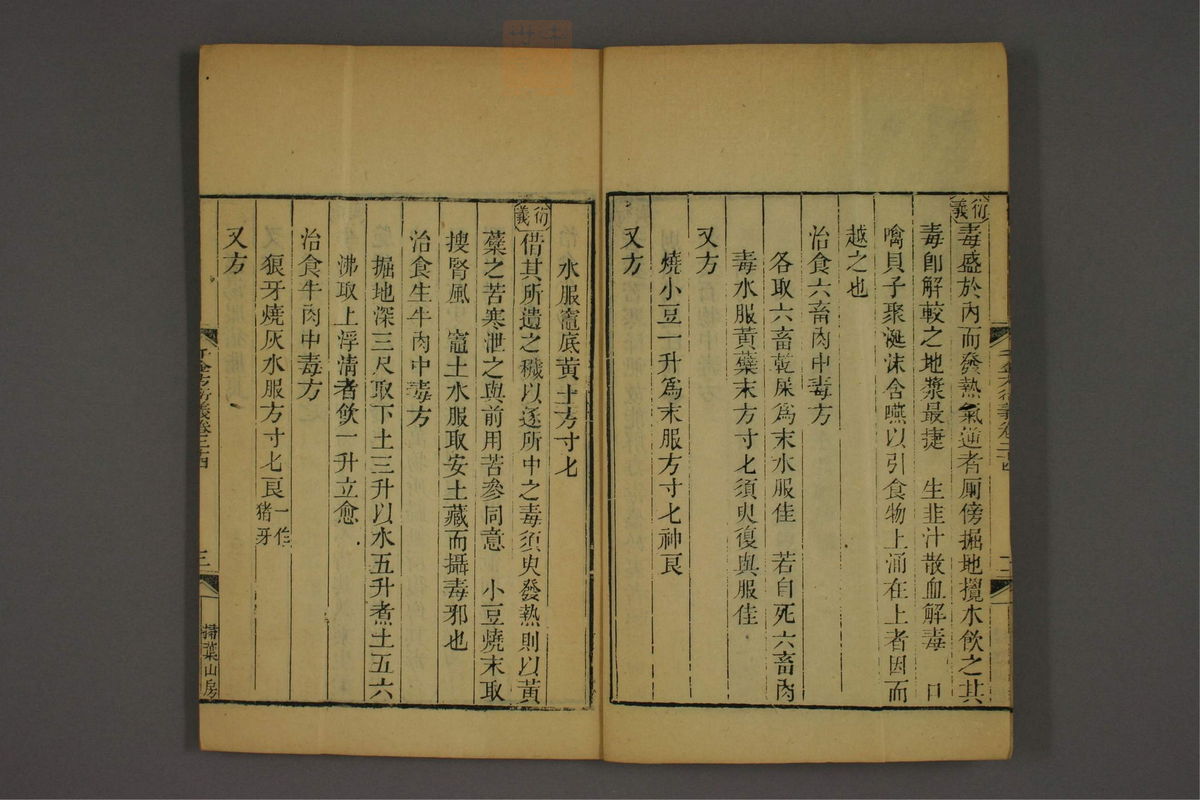 衍義毒盛於内而發熱氣逆者厠傍掘地攪水飲之其
毒卽解較之地漿最捷　生韭汁散血解毒　口
噙貝子聚涎沫含嚥以引食物上涌在上者因而
越之也
治食六畜肉中毒方
各取六畜乾屎爲末水服佳　若自死六畜肉
毒水服黃蘗末方寸匕須臾復與服佳
又方
燒小豆一升爲末服方寸匕神良
又方
千金方衍義卷二十四
二
水服竈底黃土方寸匕
衍義借其所遺之穢以逐所中之毒須臾發熱則以黃
蘗之苦寒泄之與前用苦參同意　小豆燒末取
搜腎風　竈土水服取安土藏而攝毒邪也
治食生牛肉中毒方
掘地深三尺取下土三升以水五升煮土五六
沸取上浮淸者飲一升立愈
治食牛肉中毒方
狼牙燒灰水服方寸匕良一作猪牙
又方
千金方衍義卷二十四
三
掃葉山房